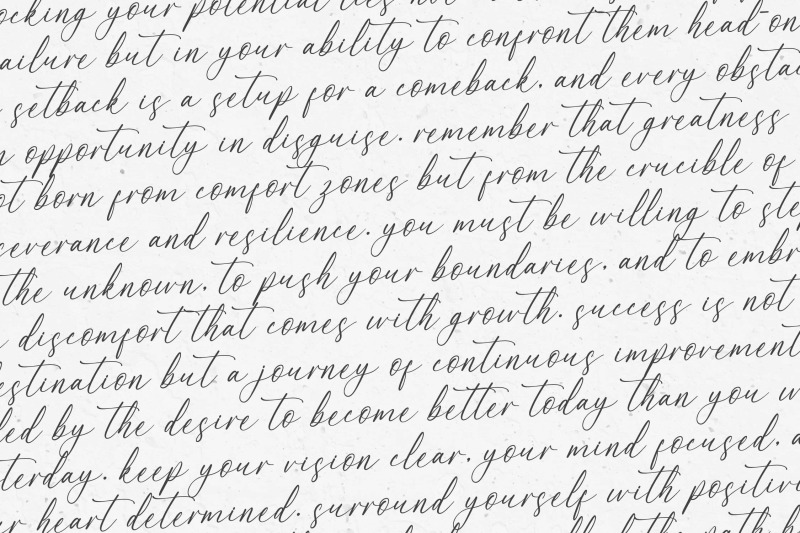 ocking your potential lies not
ailure but in your ability to confront them head on
setback is a setup for a comeback. and every obstac
n opportunity in disguise. remember that greatness
ot born from comfort zones but from the crucible of
severance and resilience. you must be willing to ste
the unknown. to push your boundaries. and to embr
discomfort that comes with growth. success is not
estination but a journey of continuous improvement
led by the desire to become better today than you w
terday. keep your vision clear. your mind focused. a
ur heart determined. surround yourself with positivi
the path